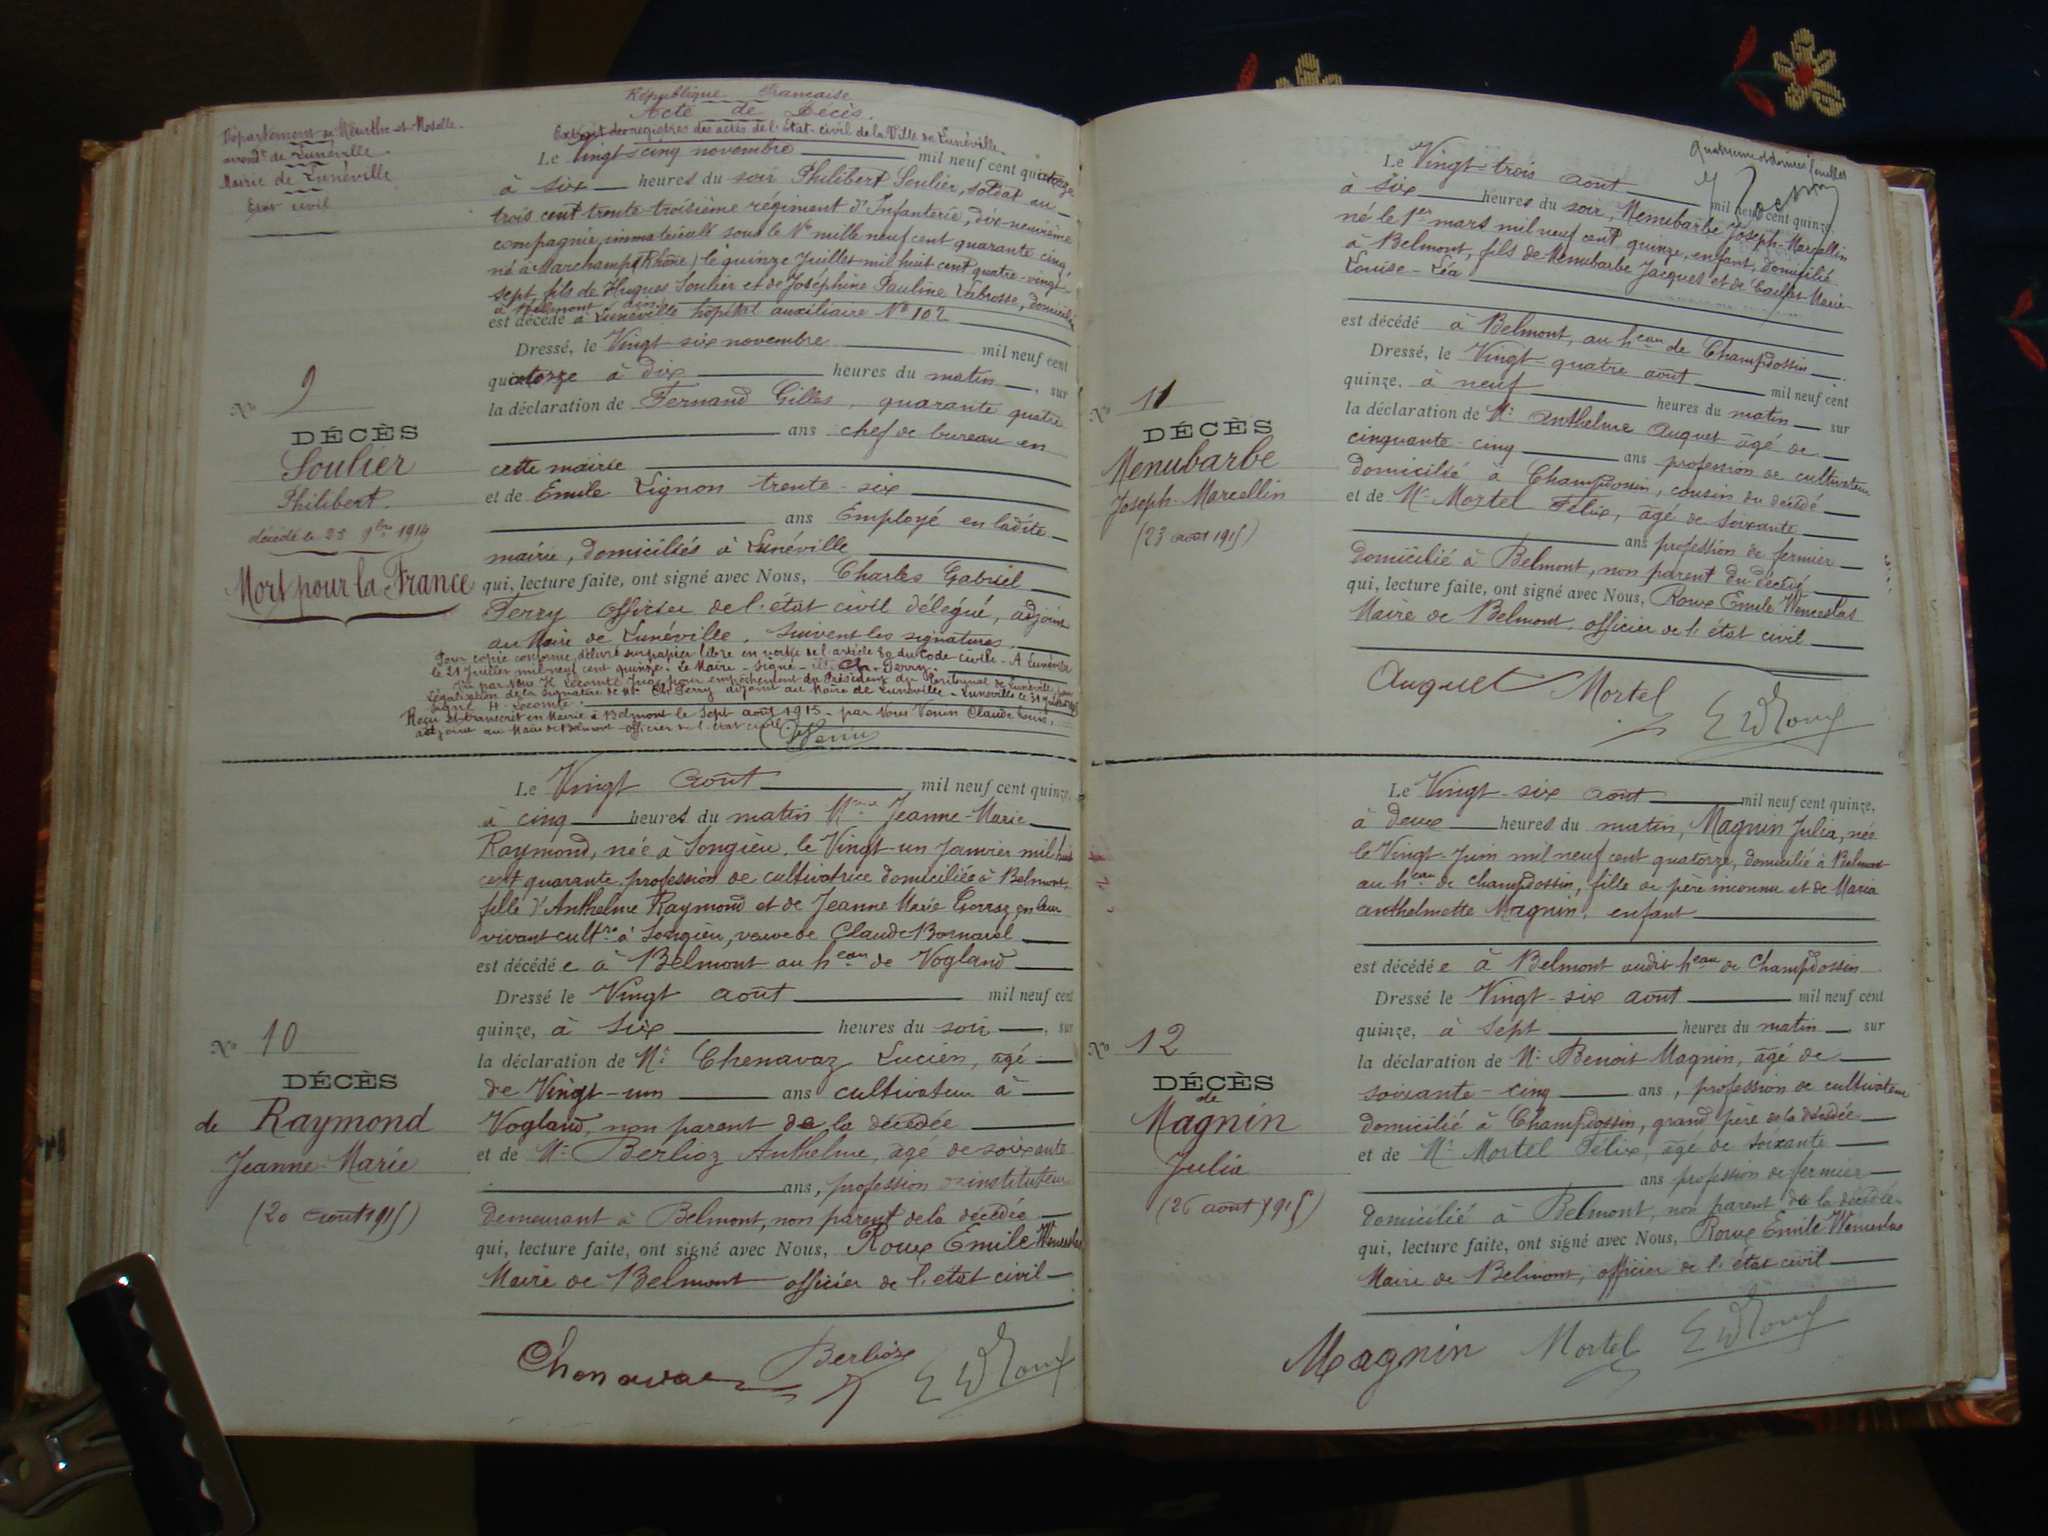 République Française
Acte de Décès.
Extrait des registres des actes de l'Etat-civil de la Ville de Lunéville.
Département de Meurthe-et-Moselle.
arrondt de Lunéville.
Mairie de Lunéville
Etat civil
Le Vingt-cinq novembre mil neuf cent quatorze
à six heures du soir Philibert Soulier, soldat au
trois cent trente-troisième régiment d'Infanterie, dix-neuvième
compagnie, immatriculé sous le No mille neuf cent quarante cinq,
né à Marchampt (Rhône) le quinze Juillet mil huit cent quatre-vingt-
sept, fils de Hugues Soulier et de Joséphine Pauline Labrosse, domicilié
à Belmont
est décédé à Lunéville hôpital auxiliaire No 102
Dressé, le Vingt-six novembre mil neuf cent
quatorze à dix heures du matin, sur
la déclaration de Fernand Gilles, quarante quatre
ans chef de bureau en
cette mairie
et de Emile Lignon trente-six
ans Employé en ladite
mairie, domiciliés à Lunéville
qui, lecture faite, ont signé avec Nous, Charles Gabriel
Ferry officier de l'état civil délégué, adjoint
au Maire de Lunéville. Suivent les signatures.
Pour copie conforme, délivré sur papier libre en vertu de l'article 80 du Code civil - A Lunéville
le 21 Juillet mil neuf cent quinze. Le Maire - signé - Ch. Ferry.
Vu par Nous H. Lecomte Juge pour empêchement du Président du Tribunal de Lunéville pour
légalisation de la signature de Mr Ch. Ferry adjoint au Maire de Lunéville - Lunéville le 31 Juillet 1915
Signé H. Lecomte.
Reçu et transcrit en Mairie à Belmont le Sept août 1915 - par Nous Venin Claude Louis,
adjoint au Maire de Belmont officier de l'état civil.
Venin
No 9
DÉCÈS
Soulier
Philibert.
décédé le 25 9bre 1914
Mort pour la France
Le Vingt août mil neuf cent quinze,
à cinq heures du matin Mme Jeanne-Marie
Raymond, née à Songieu, le Vingt-un Janvier mil huit
cent quarante, profession de cultivatrice domiciliée à Belmont,
fille d'Anthelme Raymond et de Jeanne Marie en leur
vivant cultrs à Songieu, veuve de Claude Bornarel
est décédée à Belmont au heau de Vogland
Dressé le Vingt août mil neuf cent
quinze, à six heures du soir, sur
la déclaration de Mr Chenavaz Lucien, âgé
de Vingt-un ans cultivateur à
Vogland, non parent de la décédée
et de Mr Berlioz Anthelme, âgé de soixante
ans, profession d'instituteur
demeurant à Belmont, non parent de la décédée
qui, lecture faite, ont signé avec Nous, Roux Emile Wenceslas
Maire de Belmont officier de l'état civil
Chenavaz Berlioz E W Roux
No 10
DÉCÈS
de Raymond
Jeanne-Marie
(20 août 1915)
Quatrième et dernier feuillet
Le Vingt-trois août mil neuf cent quinze,
à six heures du soir, Menubarbe Joseph-Marcellin
né le 1er mars mil neuf cent quinze, enfant, domicilié
à Belmont, fils de Menubarbe Jacques et de Marie-
Louise-Léa
est décédé à Belmont, au heau de Champdossin
Dressé, le Vingt-quatre août mil neuf cent
quinze, à neuf heures du matin sur
la déclaration de Mr Anthelme Auguet âgé de
cinquante-cinq ans profession de cultivateur
domicilié à Champdossin, cousin du décédé
et de Mr Mortel Félix, âgé de soixante
ans profession de fermier
domicilié à Belmont, non parent du décédé
qui, lecture faite, ont signé avec Nous, Roux Emile Wenceslas
Maire de Belmont, officier de l'état civil
Auguet Mortel E W Roux
No 11
DÉCÈS
Menubarbe
Joseph-Marcellin
(23 août 1915)
Le Vingt-six août mil neuf cent quinze,
à deux heures du matin, Magnin Julia, née
le Vingt Juin mil neuf cent quatorze, domicilié à Belmont
au heau de Champdossin, fille de père inconnu et de Maria
Anthelmette Magnin, enfant
est décédée à Belmont audit heau de Champdossin
Dressé le Vingt-six août mil neuf cent
quinze, à sept heures du matin, sur
la déclaration de Mr Benoit Magnin, âgé de
soixante-cinq ans, profession de cultivateur
domicilié à Champdossin, grand père de la décédée
et de Mr Mortel Félix, âgé de soixante
ans profession de fermier
domicilié à Belmont, non parent de la décédée
qui, lecture faite, ont signé avec Nous, Roux Emile Wenceslas
Maire de Belmont, officier de l'état civil
Magnin Mortel E W Roux
No 12
DÉCÈS
de
Magnin
Julia
(26 août 1915)